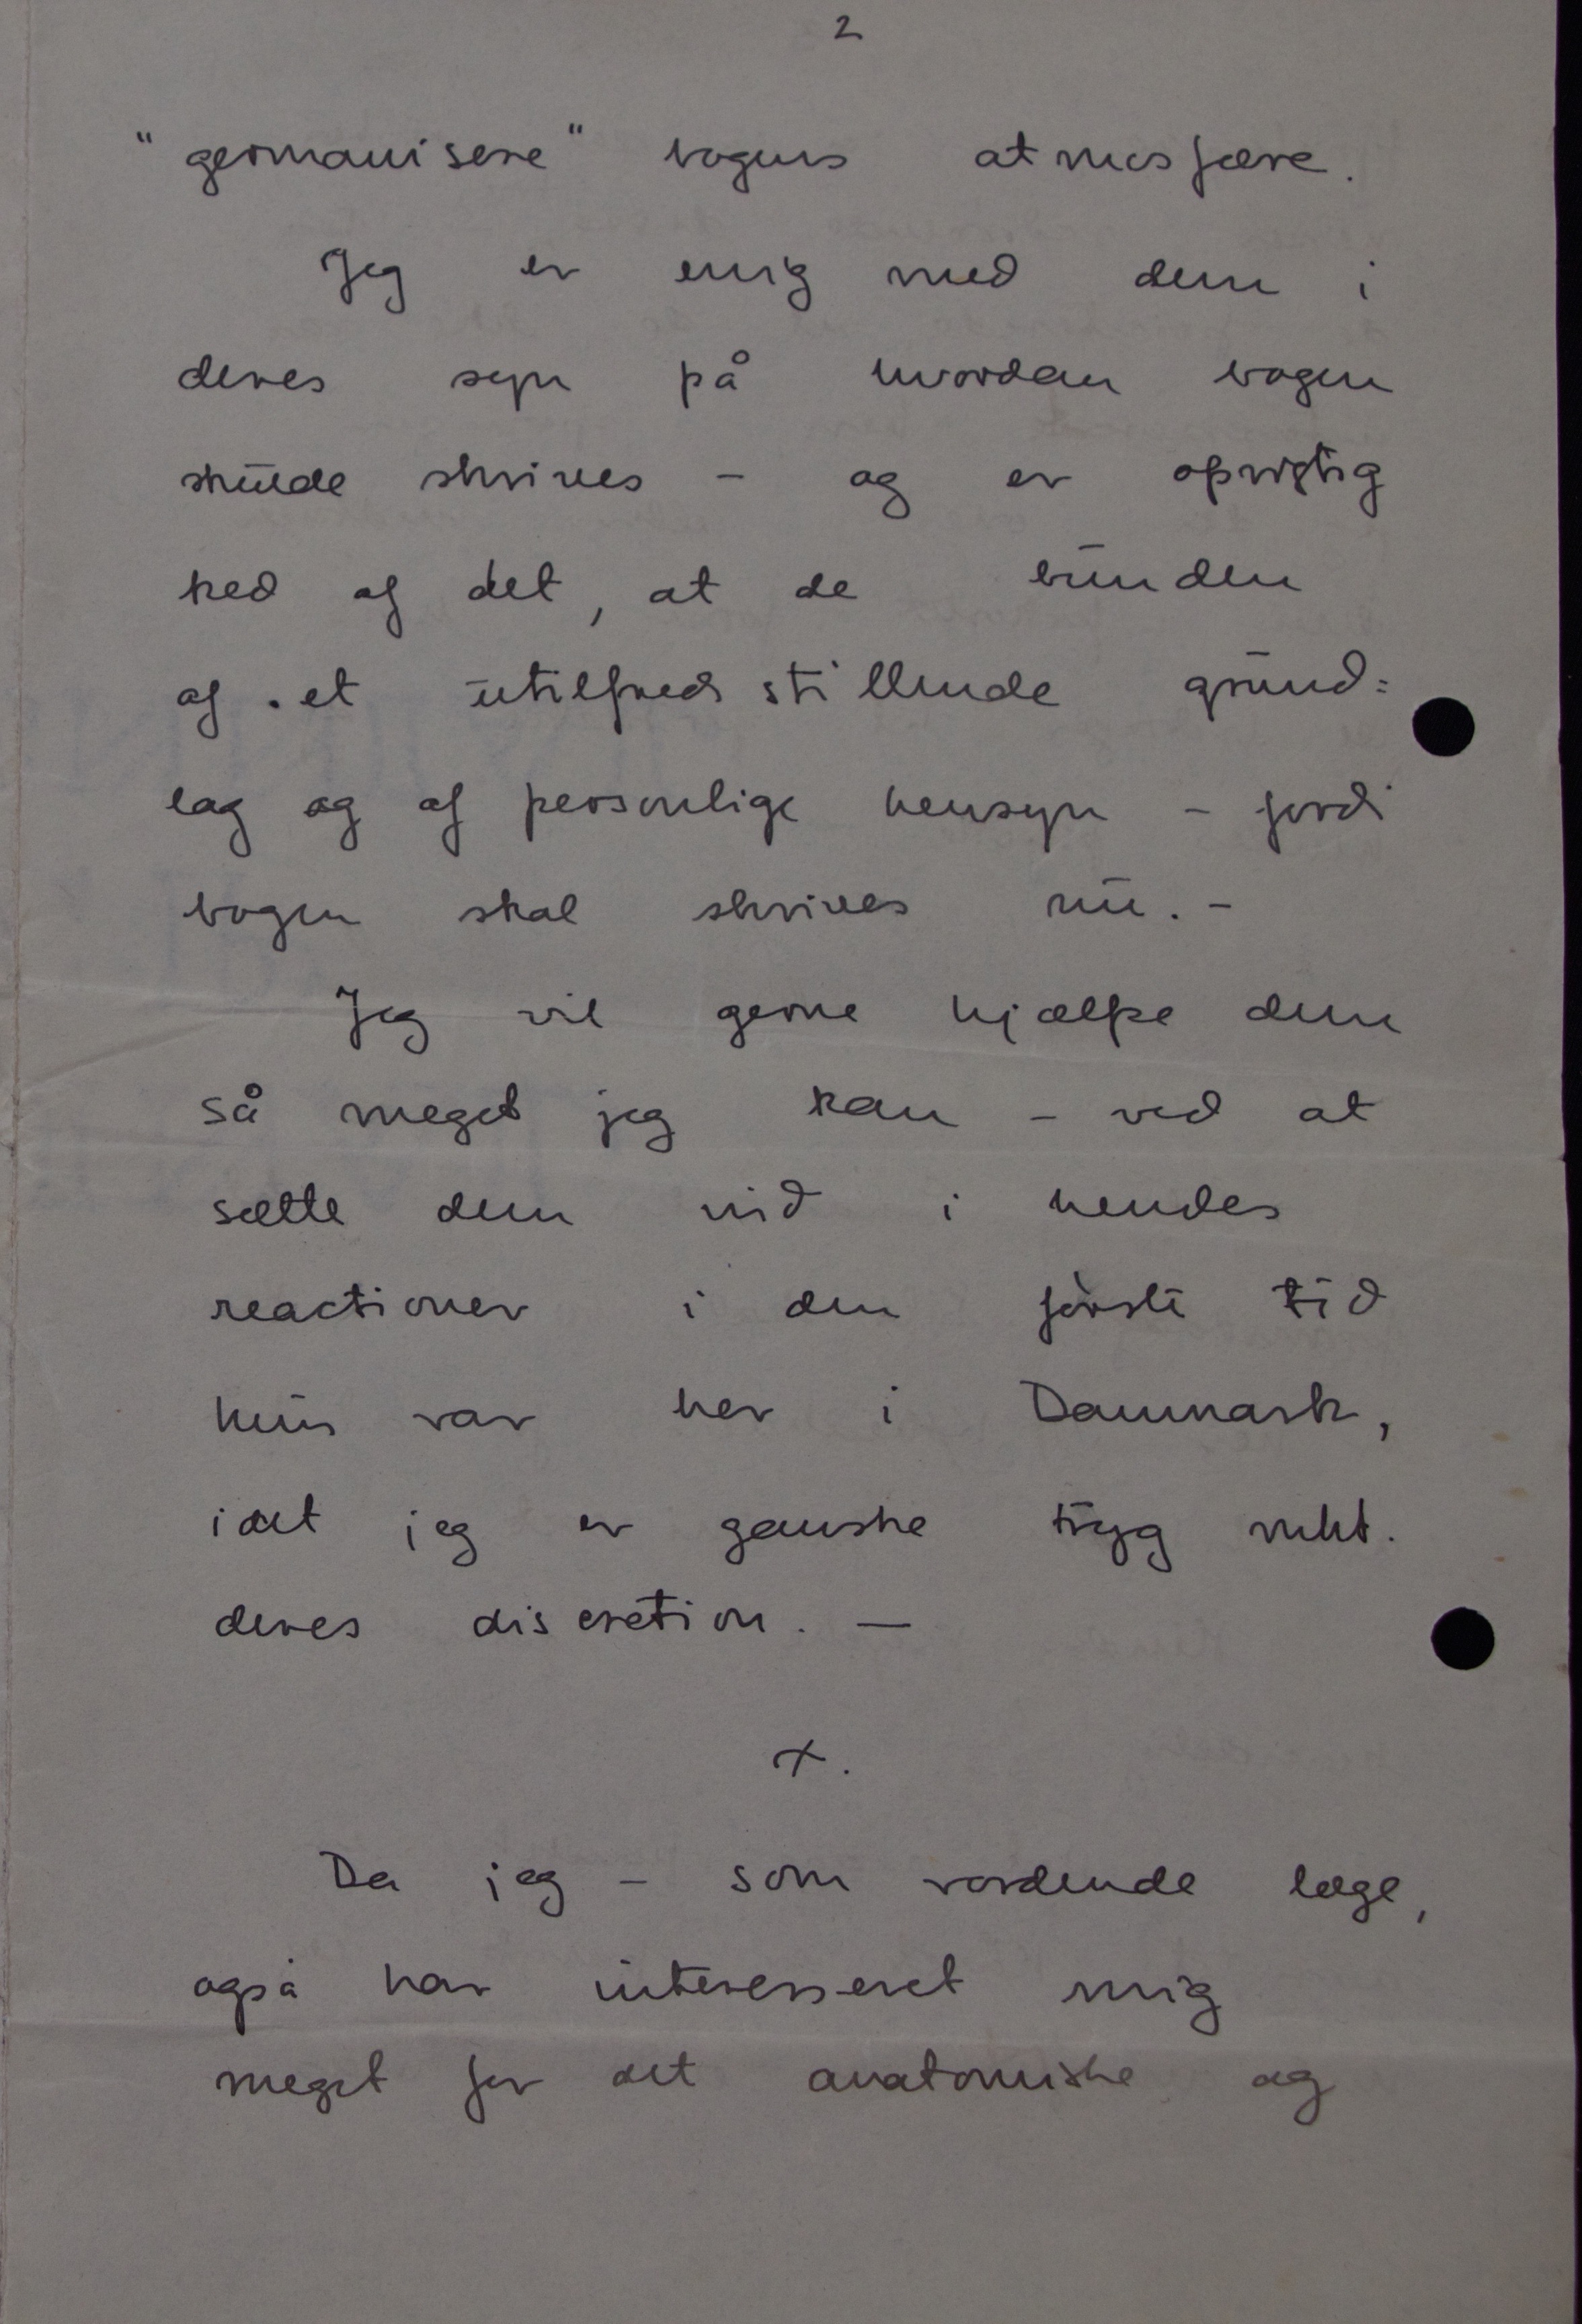 2
"germanisere" bogens atmosfære.
Jeg er enig med dem i
deres syn på hvordan bogen
skulde skrives – og er oprigtig
ked af det, at de bunder
af et utilfredsstillende grund=
lag og af personlige hensyn – fordi
bogen skal skrives nu. –
Jeg vil gerne hjælpe dem
så meget jeg kan – ved at
sætte dem ind i hendes
reactioner i den første tid
hun var her i Danmark,
idet jeg er ganske tryg mht.
deres discretion. —
x.
Da jeg – som vordende læge,
også har interesseret mig
meget for det anatomiske og